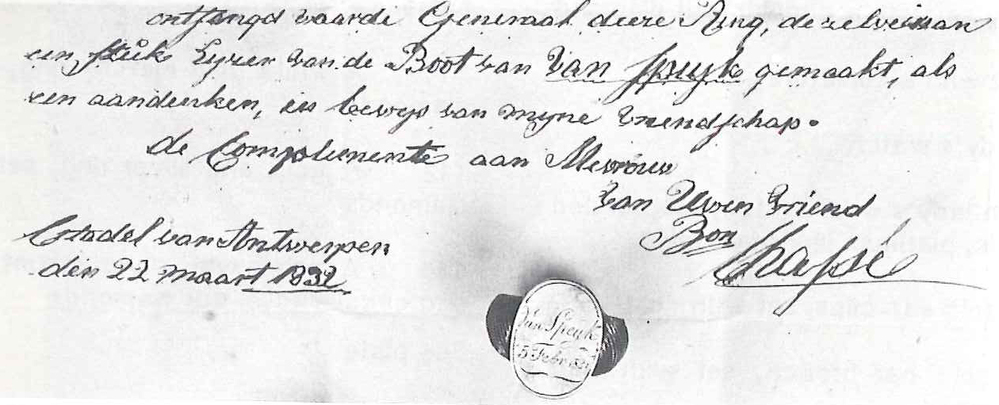 ontfangd waarde Generaal deeze Ring, dezelve is van
een stuk Eyzer van de Boot van Van Speyk gemaakt, als
een aandenken, en bewys van myne vriendschap.
de Complimente aan Mevrouw
van Uwen Vriend
Bon Chassé
Citadel van Antwerpen
den 22 maart 1832
Van Speyk
5 Febr 1831